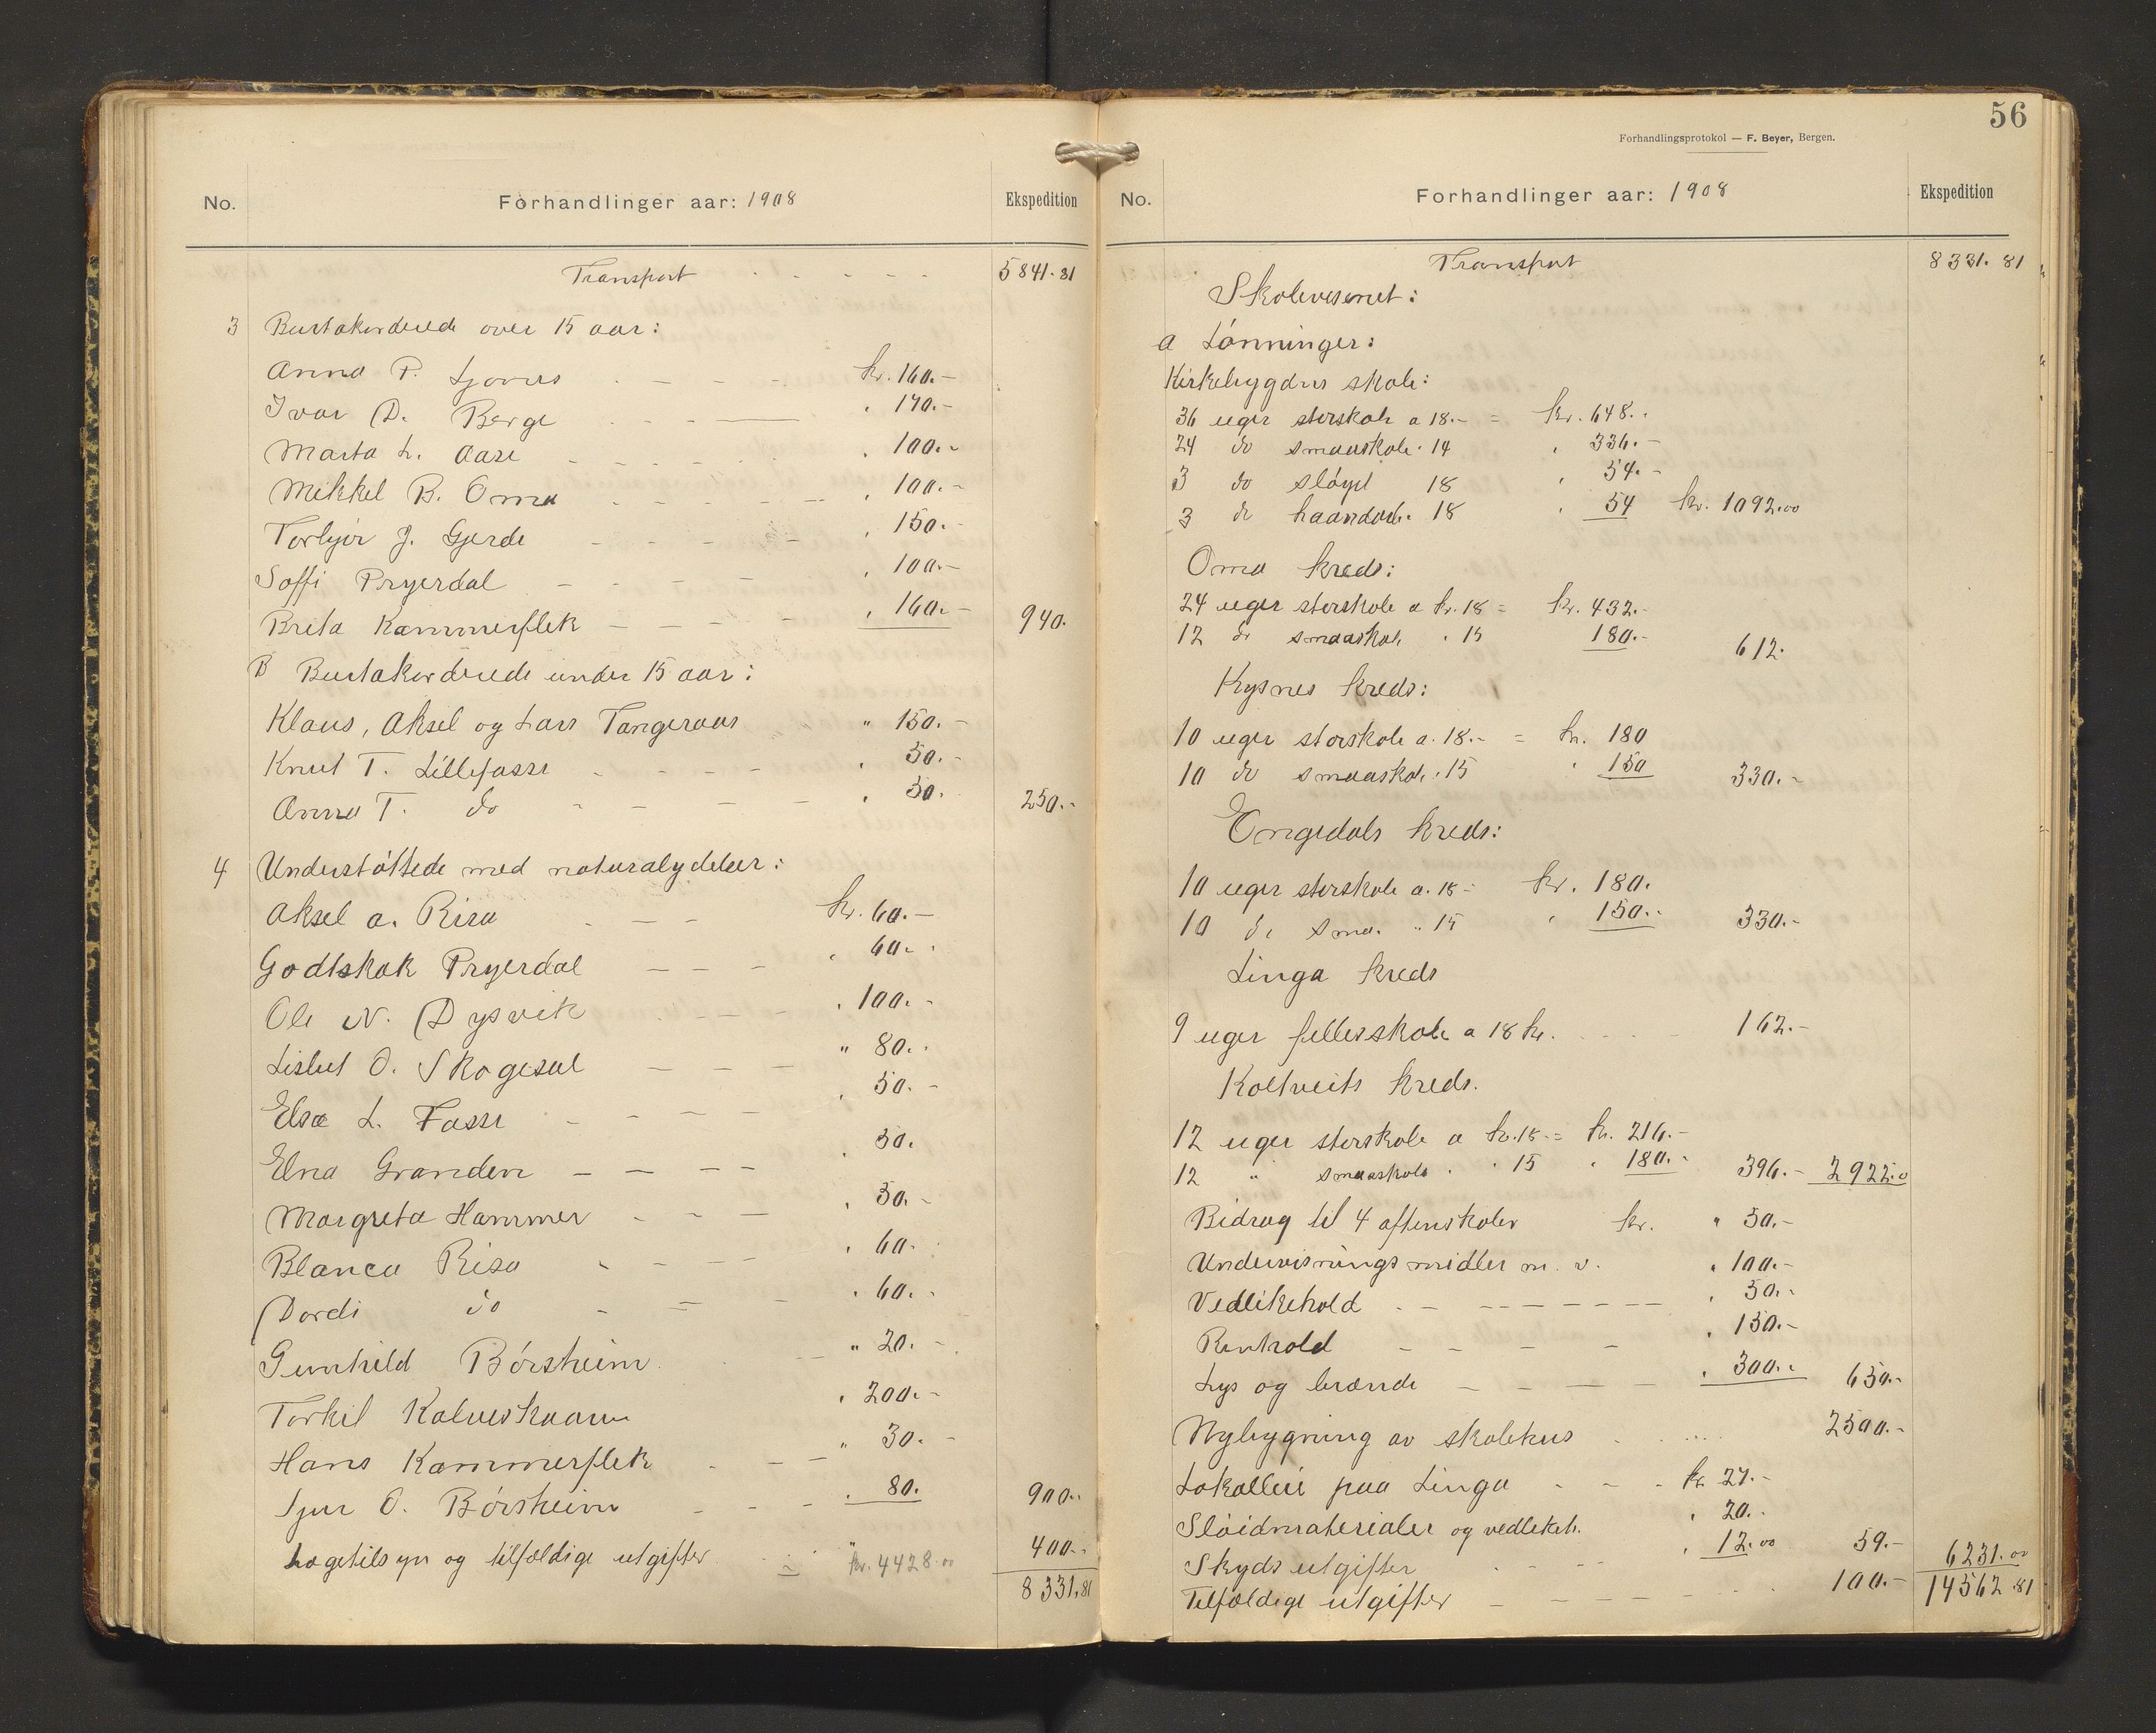 No. Forhandlinger aar: 1908 Ekspedition
Transport 5841.81
3 Bortakorderede over 15 aar:
Anna P. Ljones kr. 160.-
Ivar D. Berge " 170.-
Marta L. Aase " 100.-
Mikkel B. Oma " 100.-
Torbjør J. Gjerde " 150.-
Soffi Pryerdal " 100.-
Breta Kammerflek " 160.- 940.
B Bortakorderede under 15 aar:
Klaus, Aksel og Lars Tangeraas " 150.-
Knut T. Lillefosse " 50.-
Anna T. do " 50. 250.-
4 Understøttede med naturalydelser:
Aksel A. Risa kr. 60.-
Godtskak Pryerdal " 60.-
Ole N. Dysvik " 100.-
Lisbet O. Skogesal " 80.-
Elsa L. Fosse " 50.-
Elna Granden " 50.
Margreta Hammer " 50.-
Blanca Risa " 60.
Dordi do " 60.-
Gunhild Børsheim " 20.-
Torkil Kalveskaam " 200.-
Hans Kammerflek " 30.-
Sjur O. Børsheim " 80. 900.-
Lægetilsyn og tilfældige utgifter kr. 4428.00 400.-
8331.81
56
Forhandlingsprotokol — F. Beyer, Bergen.
No. Forhandlinger aar: 1908 Ekspedition
Transport 8331.81
Skolevesenet:
a Lønninger:
Kirkebygdens skole:
36 uger storskole a 18.- = kr. 648.-
24 do smaaskole " 14 " 336.-
3 do sløyd 18 " 54.-
3 do haandarb. 18 " 54 kr. 1092.00
Oma kreds:
24 uger storskole a kr. 18 = kr. 432.-
12 do smaaskole " 15 180.- 612.
Kysnes kreds:
10 uger storskole a. 18.- = kr. 180
10 do smaaskole " 15 " 150 330.-
Engedals kreds:
10 uger storskole a. 18 - kr. 180.
10 do sma. " 15 " 150.- 330.-
Linga kreds
9 uger fellesskole a 18 kr. 162.-
Koltveits kreds.
12 uger storskole a kr. 18.- = kr. 216.-
12 " smaaskole " 15 " 180.- 396.- 2922.0
Bidrag til 4 aftenskoler kr. " 50.-
Undervisningsmidler m. v. " 100.-
Vedlikehold " 50.-
Renhold " 150.-
Lys og brænde " 300.- 650.-
Nybygning av skolehus 2500.-
Lokalleie paa Linga kr. 27.-
Sløidmaterialer og vedlikeh. " 20.-
Skydsutgifter " 12.00 59.- 6231.00
Tilfældige utgifter 100.- 14562.81